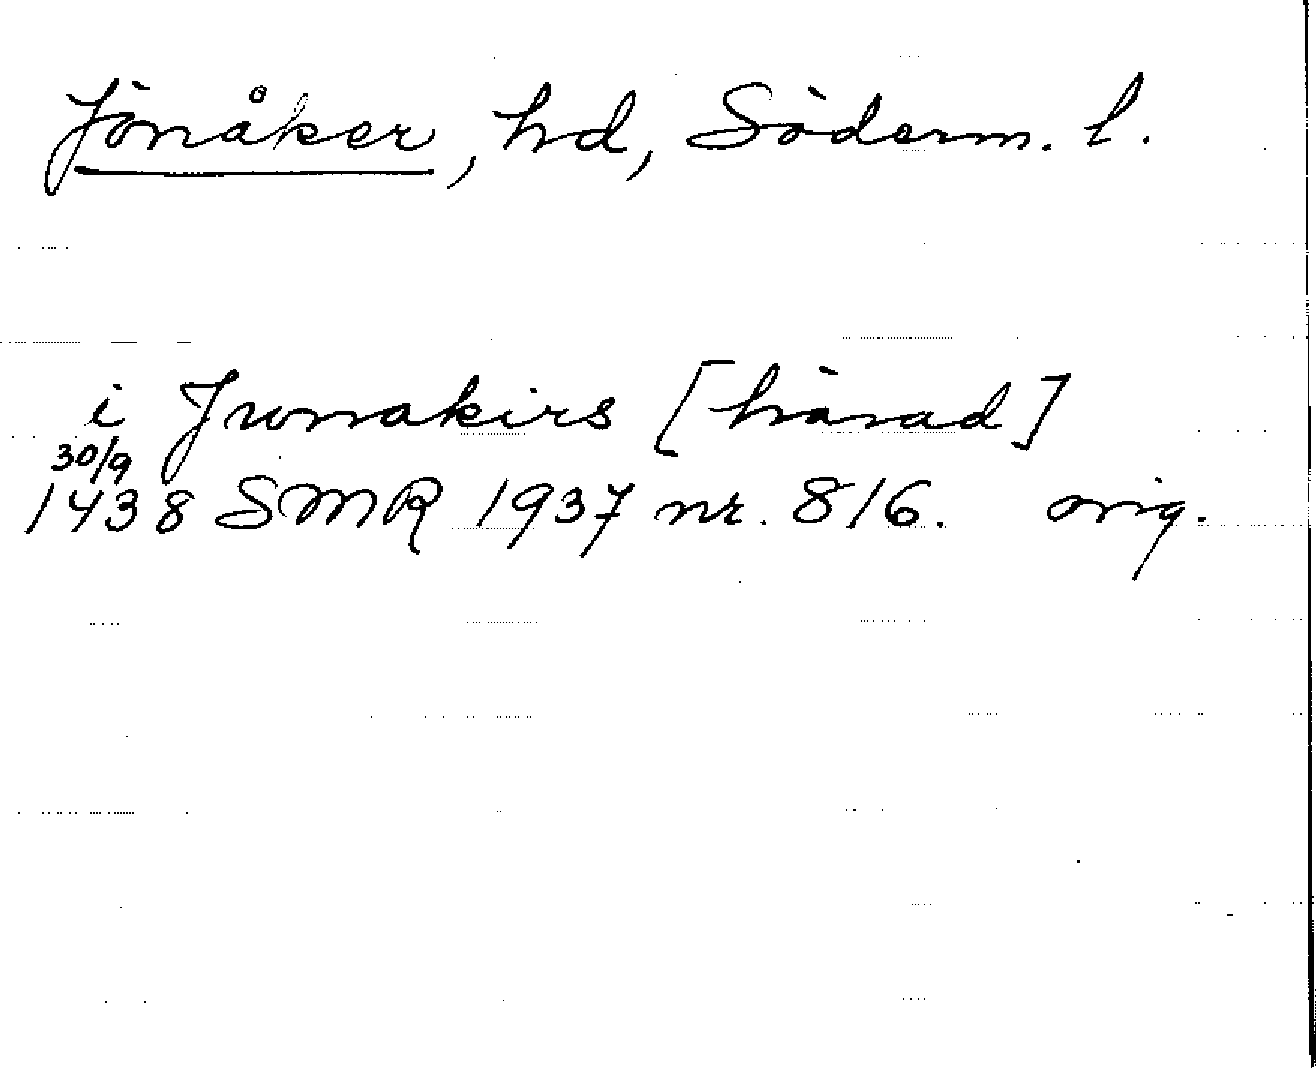 Jönåker, hd, Söderm. l.
i Jwnakirs [härad]
30/9
1438 SMR 1937 nr. 816. orig.